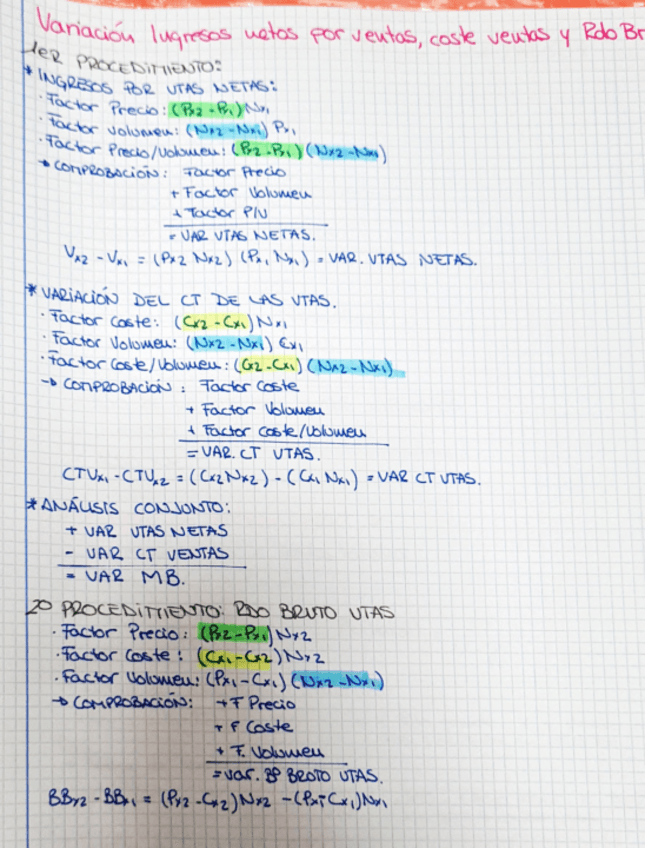 Variación Ingresos netos por ventas, coste ventas y Rdo Br
1ER PROCEDIMIENTO:
* INGRESOS POR VTAS NETAS:
· Factor Precio: (Px2 - Px1) Nx1
· Factor Volumen: (Nx2 - Nx1) Px1
· Factor Precio/Volumen: (Px2 - Px1) (Nx2 - Nx1)
→ COMPROBACIÓN: Factor Precio
+ Factor Volumen
+ Factor P/V
= VAR VTAS NETAS.
Vx2 - Vx1 = (Px2 Nx2) (Px1 Nx1) = VAR. VTAS NETAS.
* VARIACIÓN DEL CT DE LAS VTAS.
· Factor Coste: (Cx2 - Cx1) Nx1
· Factor Volumen: (Nx2 - Nx1) Cx1
· Factor Coste/Volumen: (Cx2 - Cx1) (Nx2 - Nx1)
→ COMPROBACIÓN: Factor Coste
+ Factor Volumen
+ Factor Coste/Volumen
= VAR. CT VTAS.
CTVx1 - CTVx2 = (Cx2 Nx2) - (Cx1 Nx1) = VAR CT VTAS.
* ANÁLISIS CONJUNTO:
+ VAR VTAS NETAS
- VAR CT VENTAS
= VAR MB.
2O PROCEDIMIENTO: RDO BRUTO VTAS
· Factor Precio: (Px2 - Px1) Nx2
· Factor Coste: (Cx1 - Cx2) Nx2
· Factor Volumen: (Px1 - Cx1) (Nx2 - Nx1)
→ COMPROBACIÓN: + F Precio
+ F Coste
+ F. Volumen
= Var. Bº BRUTO VTAS.
BBx2 - BBx1 = (Px2 - Cx2) Nx2 - (Px1 - Cx1) Nx1